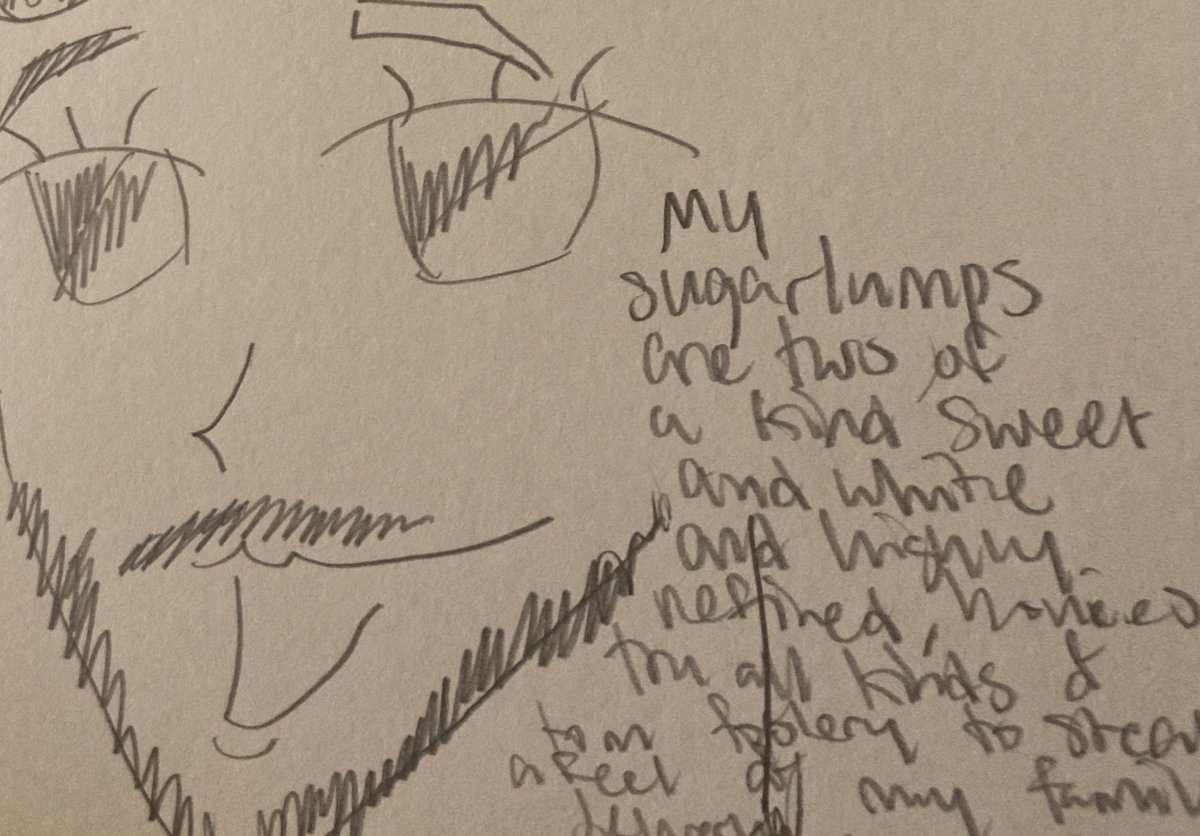 My
sugarlumps
are two of
a kind sweet
and white
and highly
refined,
try all kinds of
tom foolery to steal
a feel of my family